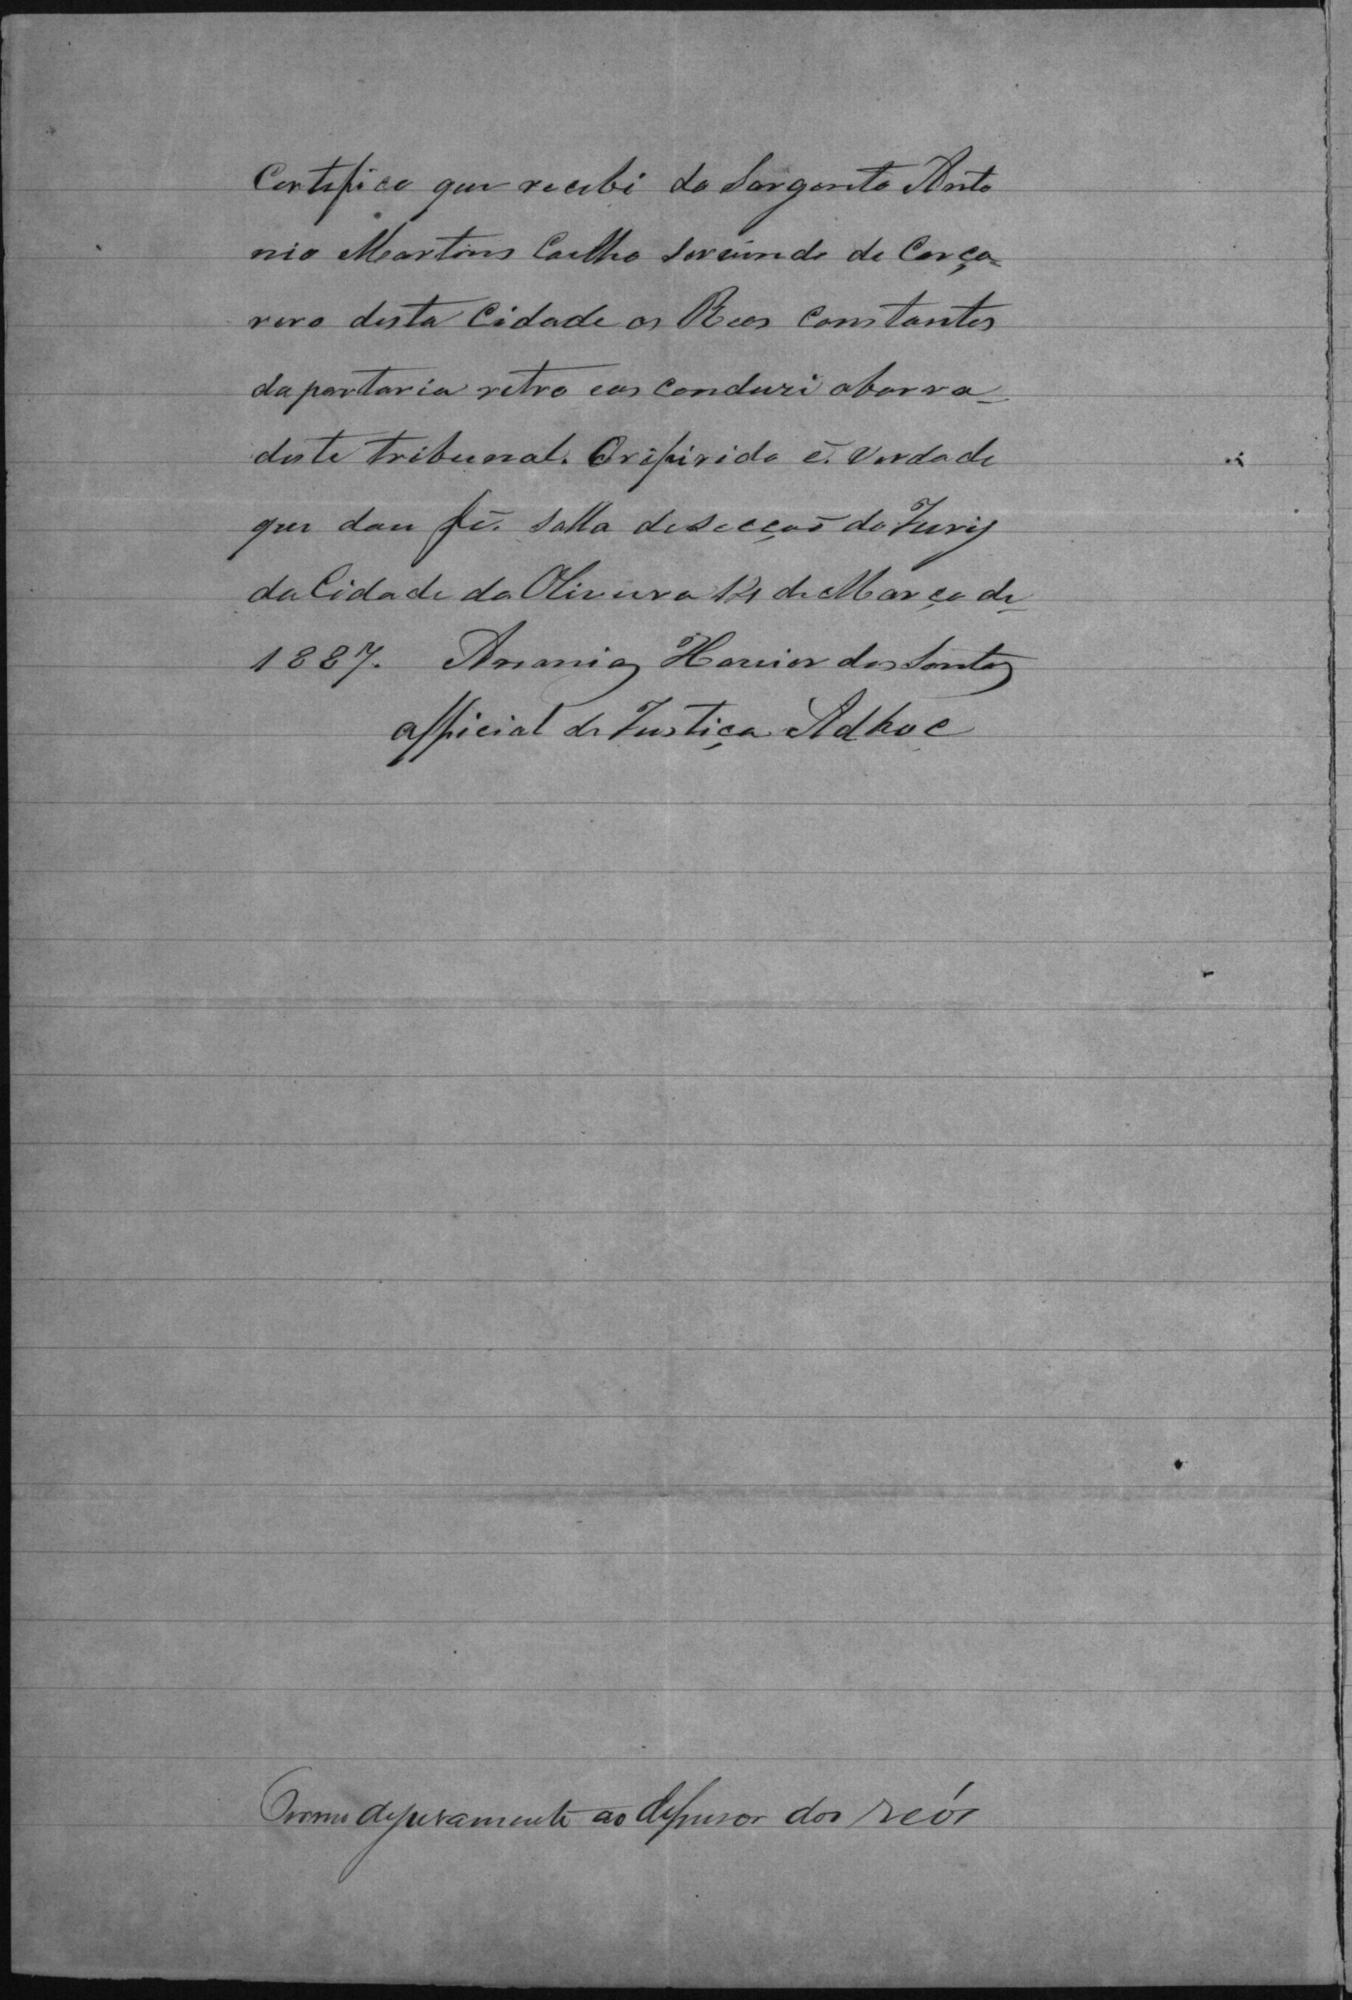 Certifico que recebi do Sargento Anto
nio Martins Coelho servindo de Carça=
rero desta Cidade os Reos Constantes
da portaria retro eos conduzi abarra
deste tribunal. Oriferido é verdade
que dou fé. Salla desecçaõ do Jury
da Cidade da Oliveira 14 de Março de
1887. Ananias Havier dos Santos
official de Justiça Adhoc
Termo dejuramento ao defensor dos reós